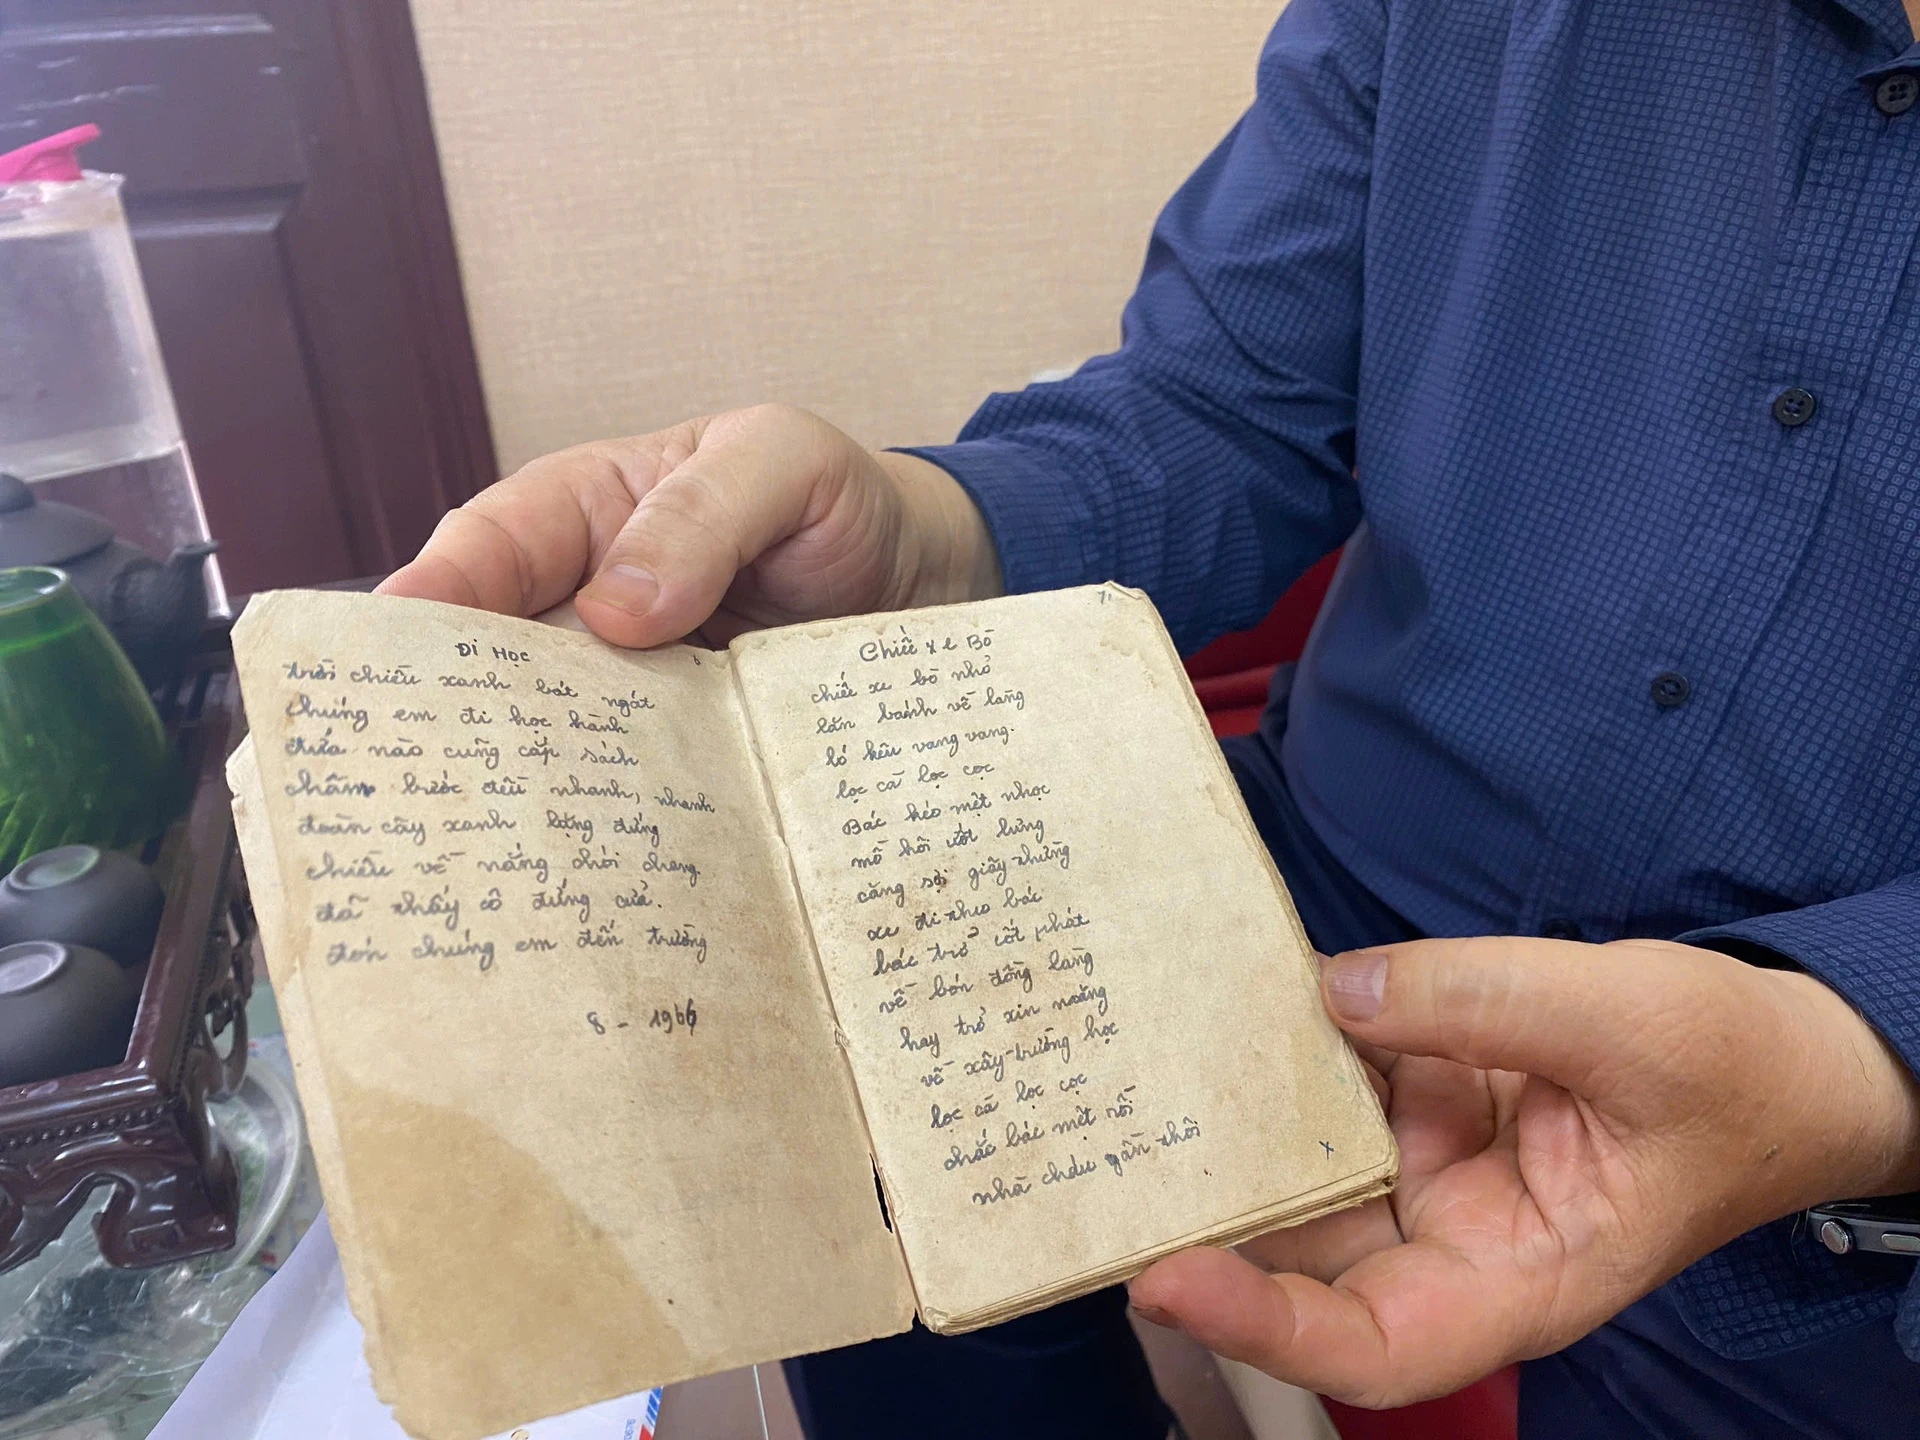 6
ĐI HỌC
trời chiều xanh bát ngát
chúng em đi học hành
đứa nào cũng cắp sách
chân bước đều nhanh, nhanh
đoàn cây xanh lặng đứng
chiều về nắng chói chang.
đã thấy cô đứng cửa.
đón chúng em đến trường
8 - 1966
71
Chiếc xe Bò
chiếc xe bò nhỏ
lăn bánh về làng
ló kêu vang vang.
lọc cà lọc cọc
Bác kéo mệt nhọc
mồ hôi ướt lưng
căng sợi giây thừng
xe đi theo bác
bác trở cốt phát
về bón đồng làng
hay trở xin măng
về xây trường học
lọc cà lọc cọc
chắc bác mệt rồi
nhà cháu gần thôi
x